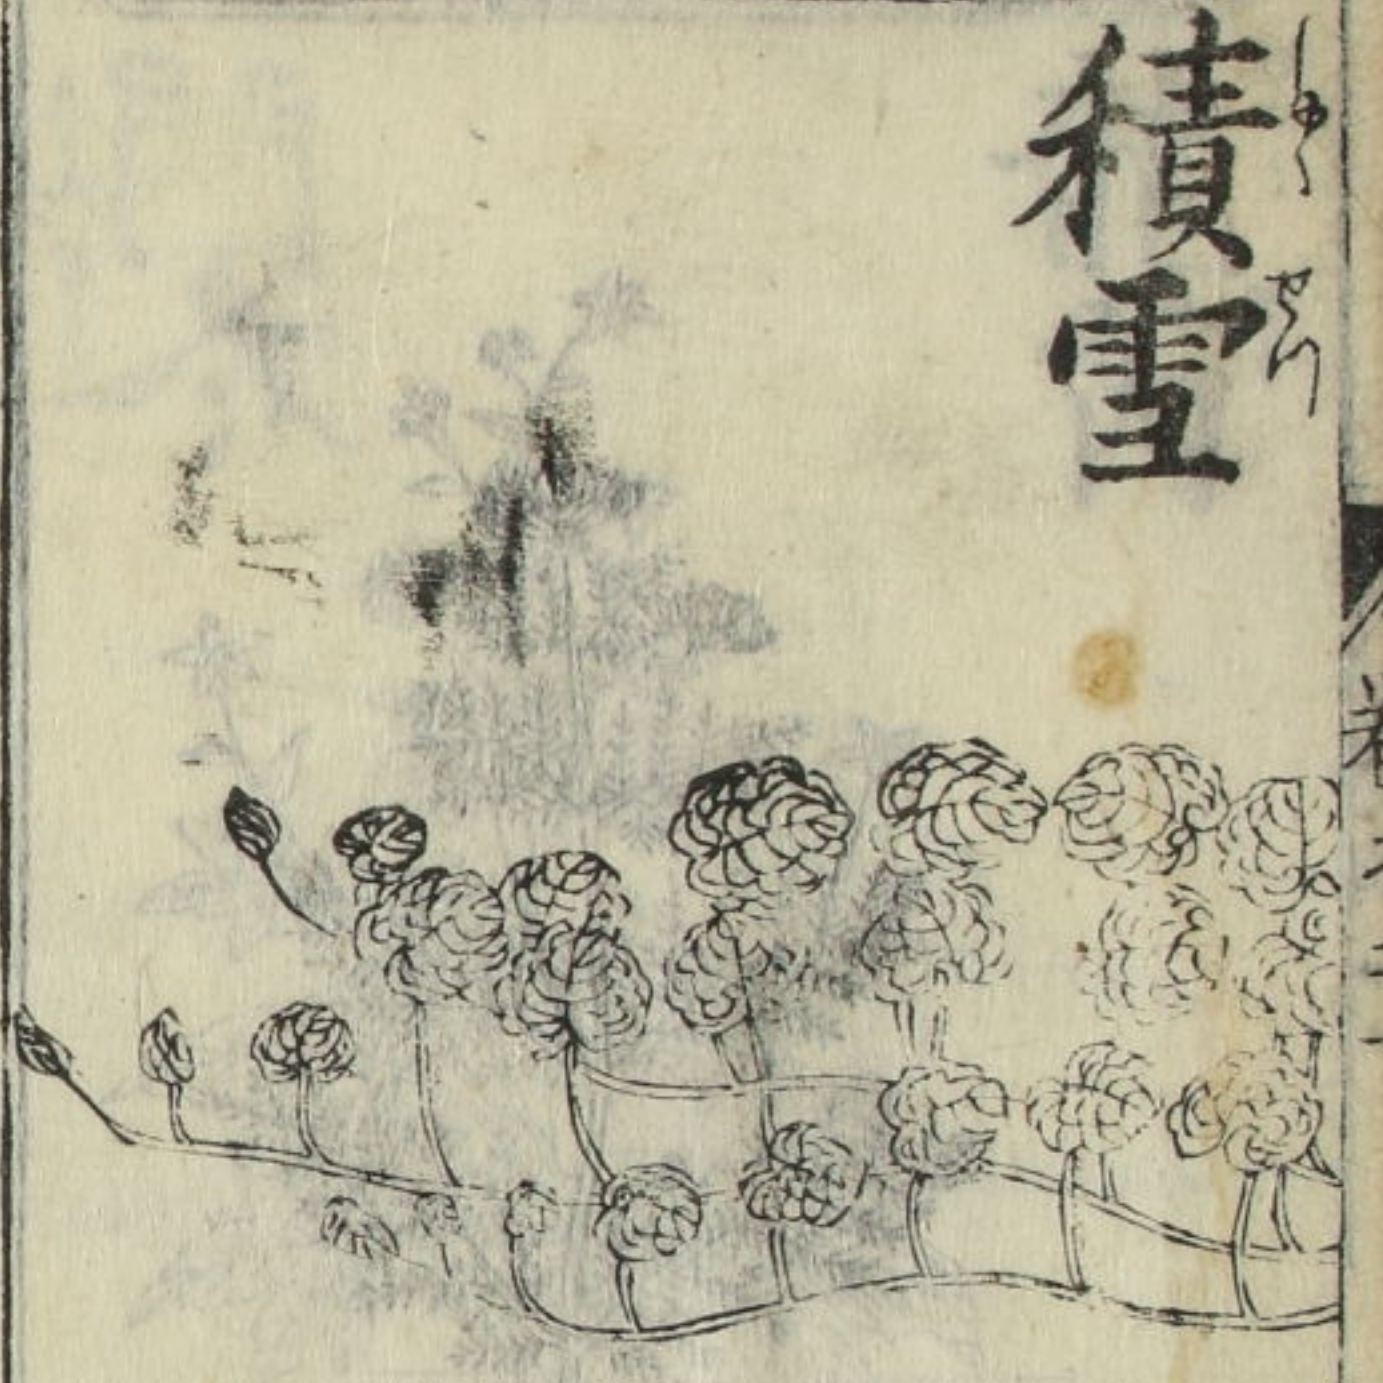 積雪
しやく せつ